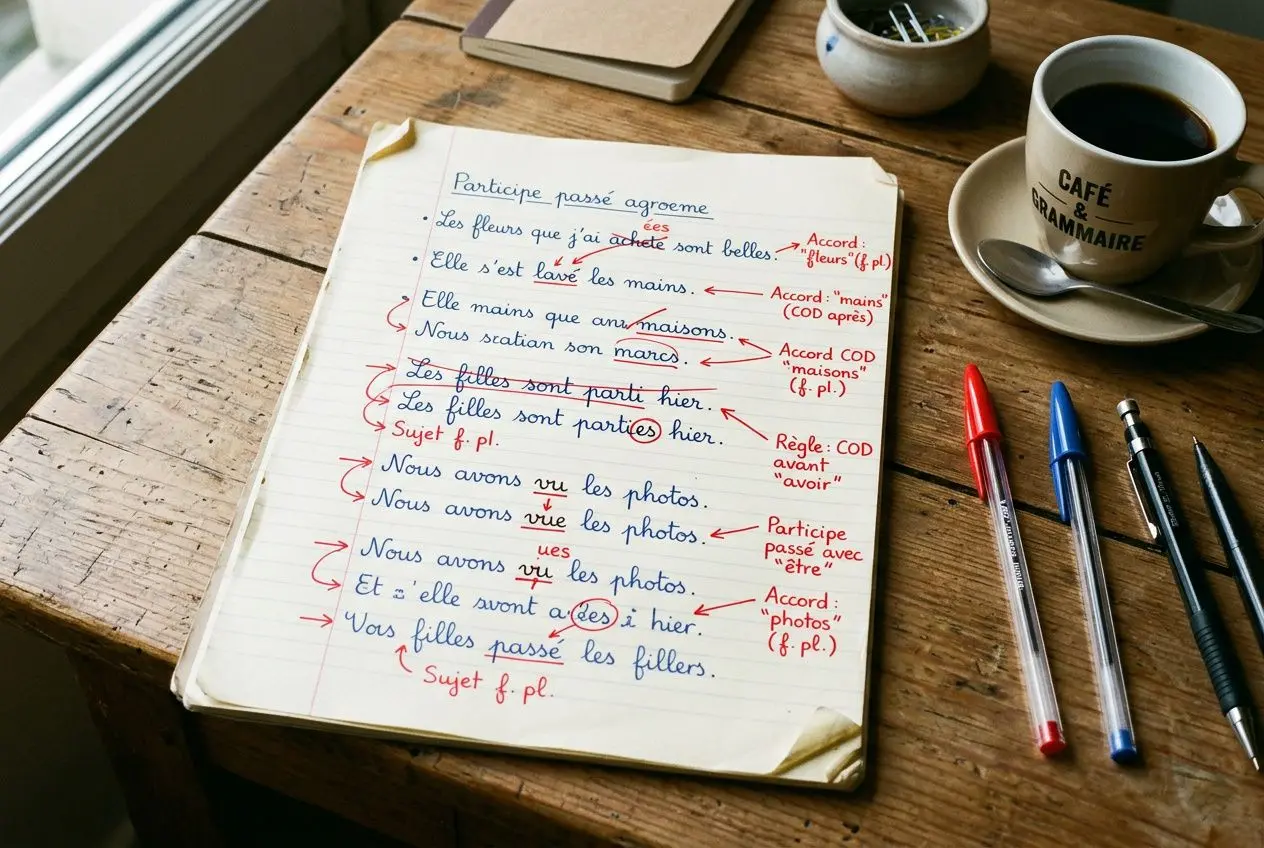 Participe passé agroeme
ées
• Les fleurs que j'ai achete sont belles.
Accord :
"fleurs" (f. pl)
• Elle s'est lavé les mains.
Accord : "mains"
(COD après)
• Elle mains que anu maisons.
Nous scatian son marcs.
Accord COD
"maisons"
(f. pl.)
Les filles sont parti hier.
Les filles sont parties hier.
Sujet f. pl.
Règle : COD
avant
"avoir"
Nous avons vu les photos.
Nous avons vue les photos.
Participe
passé avec
"être"
ues
Nous avons vu les photos.
Et 'elle svont a ées i hier.
Accord :
"photos"
(f. pl.)
Vors filles passé les fillers.
Sujet f. pl.
CAFÉ
&
GRAMMAIRE